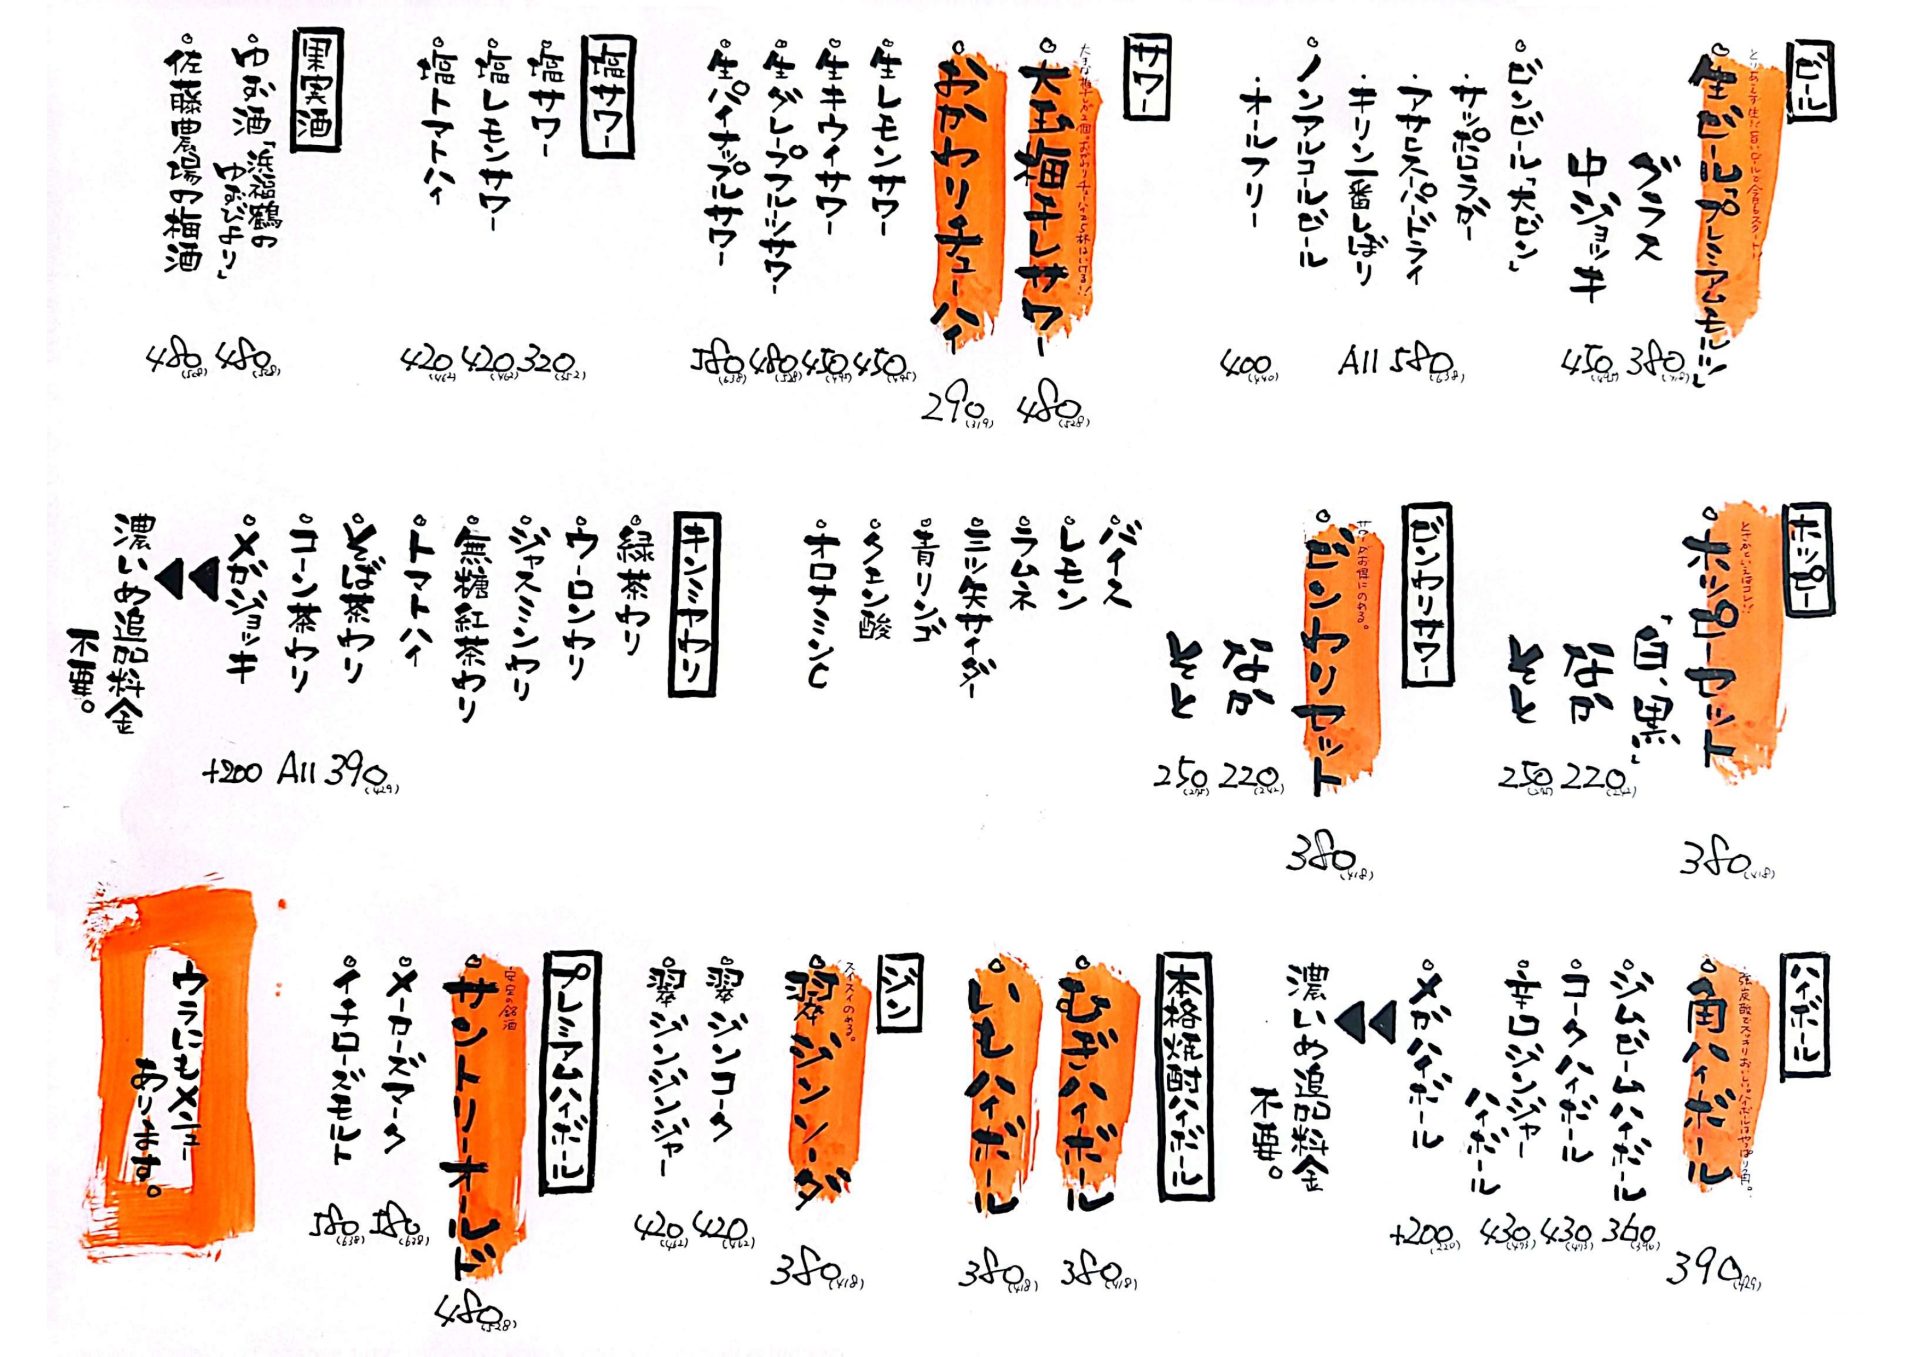 ビール
とりあえず生!!旨いビールで今日もスタート!!
生ビール「プレミアムモルツ」
グラス 380(418)
中ジョッキ 450(495)
ビンビール「大ビン」
・サッポロラガー
・アサヒスーパードライ
・キリン一番しぼり
All 580(638)
ノンアルコールビール
・オールフリー
400(440)
サワー
大きな梅干しが2個。おかわりチューハイで5杯はいける!!
大玉梅干しサワー 480(528)
おかわりチューハイ 290(319)
生レモンサワー 450(495)
生キウイサワー 450(495)
生グレープフルーツサワー 480(528)
生パイナップルサワー 580(638)
塩サワー
塩サワー 320(352)
塩レモンサワー 420(462)
塩トマトハイ 420(462)
果実酒
ゆず酒「浜福鶴の
ゆずびより」 480(528)
佐藤農場の梅酒 480(528)
ホッピー
とりきといえばコレ!!
ホッピーセット 380(418)
「白、黒」
なか 220(242)
そと 250(275)
ビンワリサワー
お得にのめる。
ビンワリセット 380(418)
なか 220(242)
そと 250(275)
バイス
レモン
ラムネ
三ツ矢サイダー
青リンゴ
クエン酸
オロナミンC
キンミヤワリ
緑茶ワリ
ウーロンワリ
ジャスミンワリ
無糖紅茶ワリ
トマトハイ
そば茶ワリ
コーン茶ワリ
All 390(429)
メガジョッキ +200
◀◀
濃いめ追加料金
不要。
ハイボール
強炭酸でスッキリおいしい。ハイボールはやっぱり角。
角ハイボール 390(429)
ジムビームハイボール 360(390)
コークハイボール 430(473)
辛口ジンジャー
ハイボール 430(473)
メガハイボール +200(220)
◀◀
濃いめ追加料金
不要。
本格焼酎ハイボール
むぎハイボール 380(418)
いもハイボール 380(418)
ジン
スイスイのめる。
翠ジンソーダ 380(418)
翠ジンコーク 420(462)
翠ジンジンジャー 420(462)
プレミアムハイボール
安定の銘酒
サントリーオールド 480(528)
メーカーズマーク 580(638)
イチローズモルト 580(638)
ウラにもメニュー
あります。